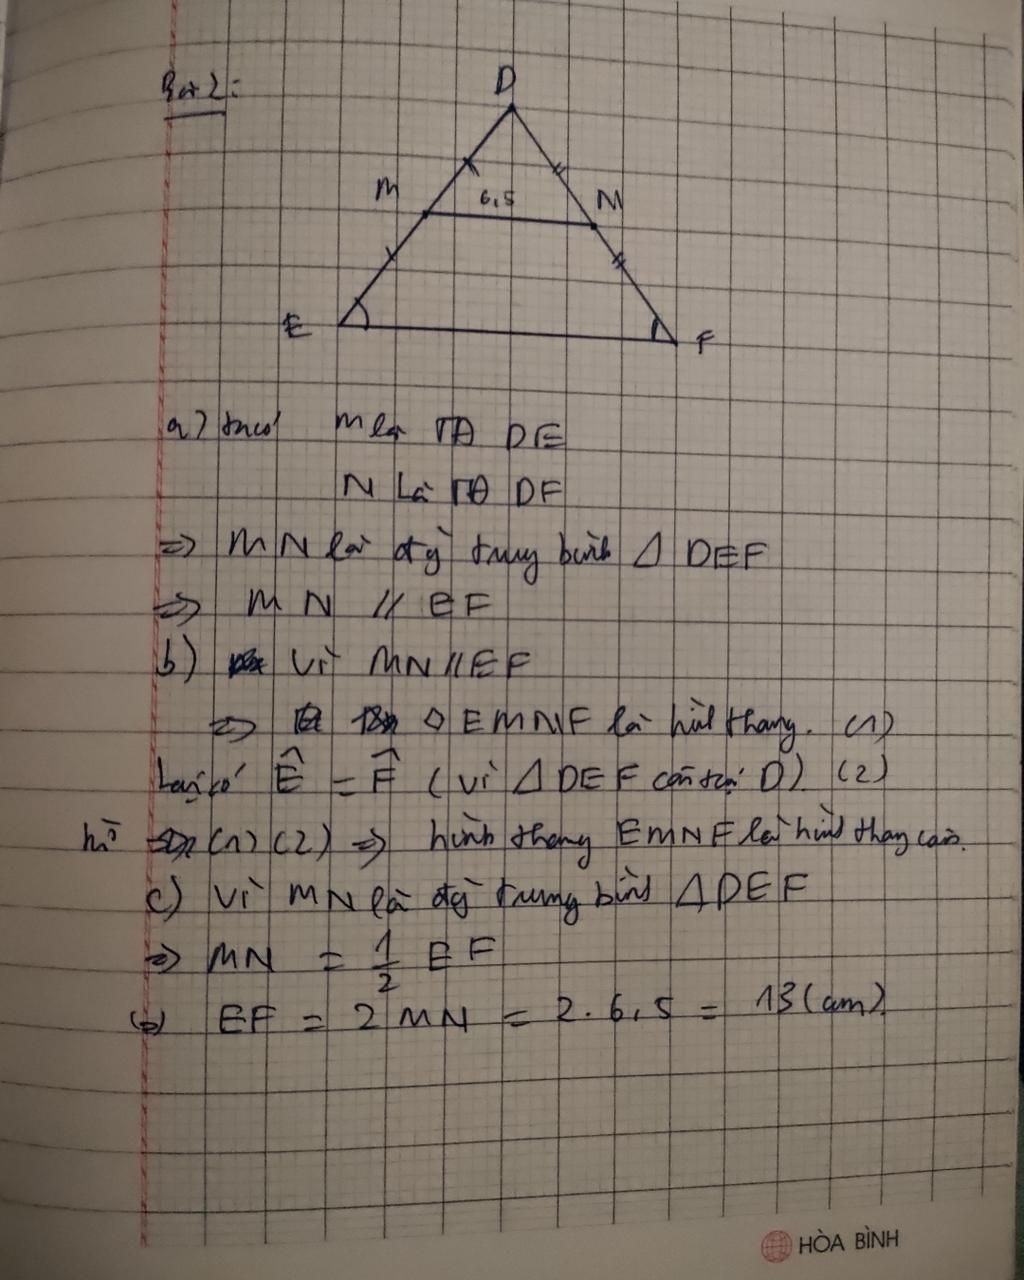 Bài 2:
D
M 6,5 N
E F
a) ta có M là TĐ DE
N là TĐ DF
=> MN là đg` trung bình Δ DEF
=> MN // EF
b) Vì MN // EF
=> ◇ EMNF là hình thang. (1)
Lại có Ê = F̂ (vì Δ DEF cân tại D) (2)
Từ (1) (2) => hình thang EMNF là hình thang cân.
c) Vì MN là đg` trung bình Δ DEF
=> MN = 1/2 EF
EF = 2 MN = 2.6,5 = 13 (cm)
HÒA BÌNH